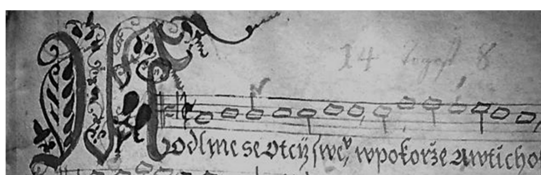 14 8
Modlme se otcÿ ſweᵐ̓ wpokorže awticho